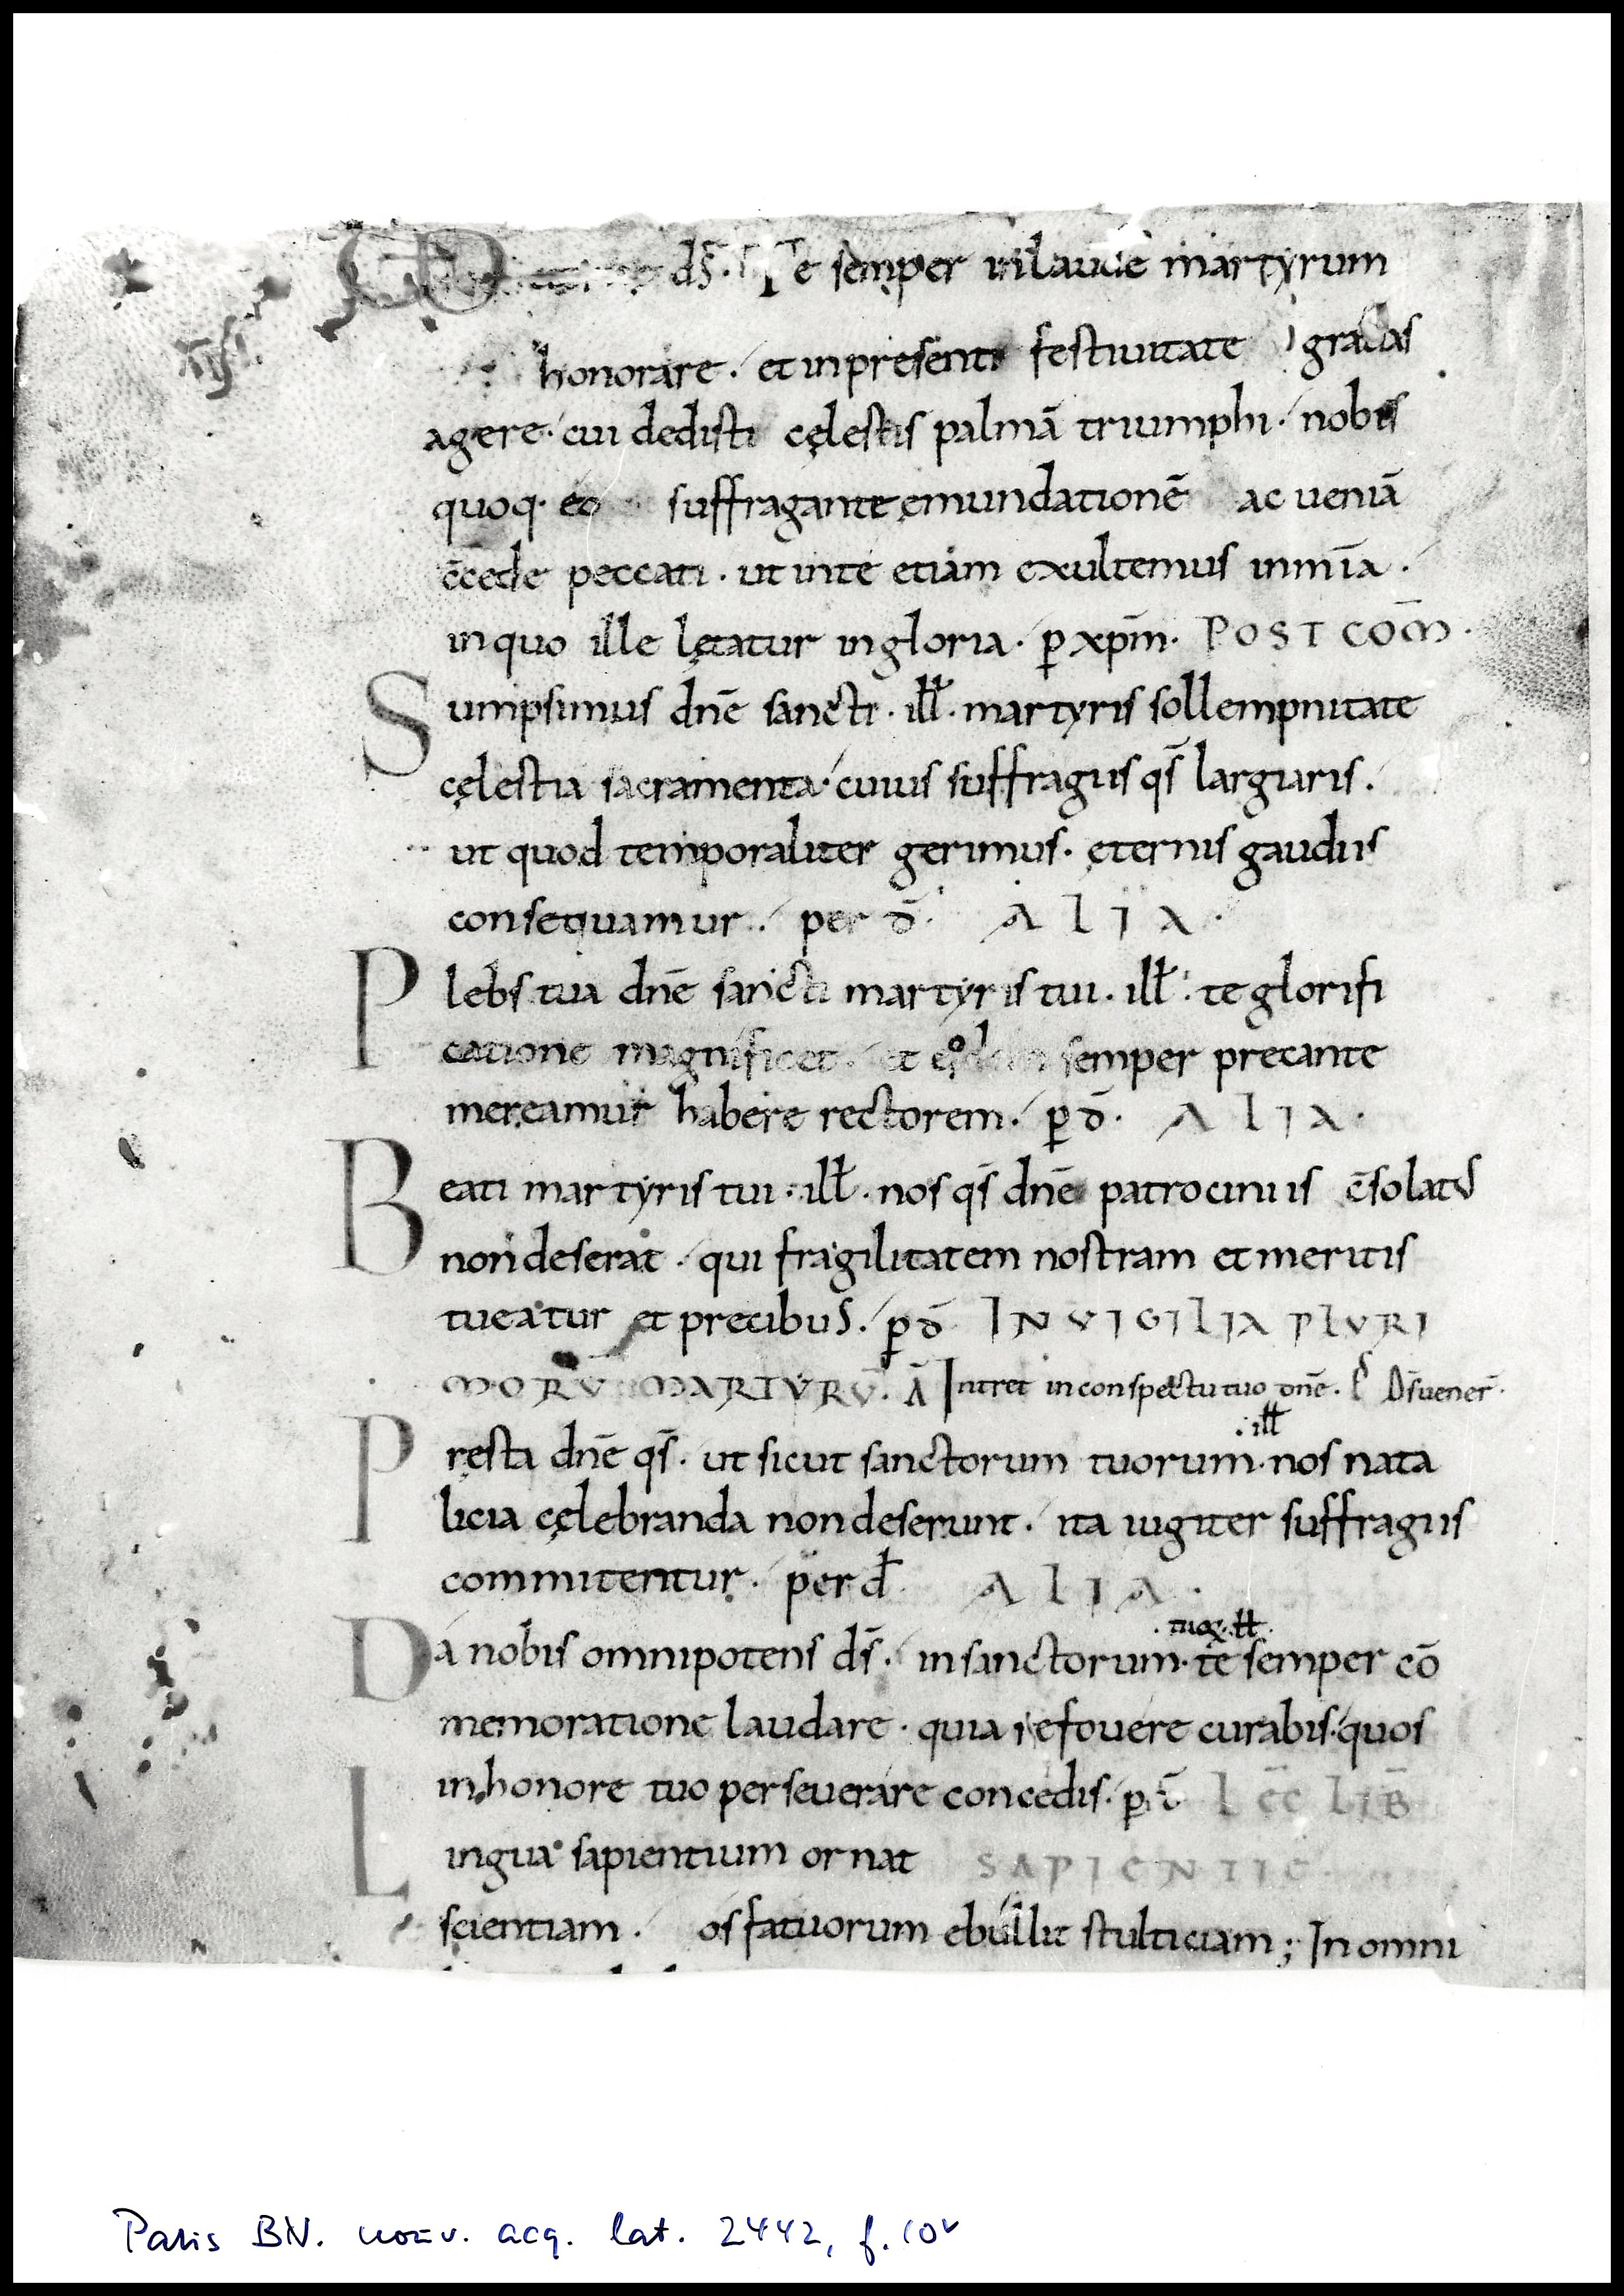 ds̄. Te semper in laude martyrum
honorare. et in presenti festiuitate gracias
agere. cui dedisti cęlestis palmā triumphi. nobis
quoq. eo suffragante ęmundationē ac ueniā
c̄cede peccati. ut in te etiam exultemus in mīa.
in quo ille lętatur in gloria. p̱ xp̄m. POST COM̄.
Sumpsimus dn̄e sancti. ill̵. martyris sollempnitate
cęlestia sacramenta. cuius suffragiis qs̄ largiaris.
ut quod temporaliter gerimus. ęternis gaudiis
consequamur. per d̄. ALIA.
Plebs tua dn̄e sancti martyris tui. ill̵. te glorifi
catione magnificet. et eodem semper precante
mereamur habere rectorem. p̱ d̄. ALIA.
Beati martyris tui. ill̵. nos qs̄ dn̄e patrociniis c̄solat᷒
non deserat. qui fragilitatem nostram et meritis
tueatur et precibus. p̱ d̄ IN VIGILIA PLVRI
MORV̄ MARTVRV̄. Ā Intret in conspectu tuo dn̄e. P̄s D̄s uener̄.
.ill̵
Pręsta dn̄e qs̄. ut sicut sanctorum tuorum. nos nata
licia cęlebranda non deserunt. ita iugiter suffragiis
commitentur. per d̄. ALIA.
.tuoꝝ. ill̵.
Da nobis omnipotens ds̄. in sanctorum. te semper cō
memoratione laudare. quia refouere curabis. quos
in honore tuo perseuerare concedis. p̱ d̄ LEC̄ LIB̄
Lingua sapientium ornat SAPIENTIE
scientiam. os fatuorum ebullit stulticiam; In omni
Paris BN. nouv. acq. lat. 2442, f. 10v